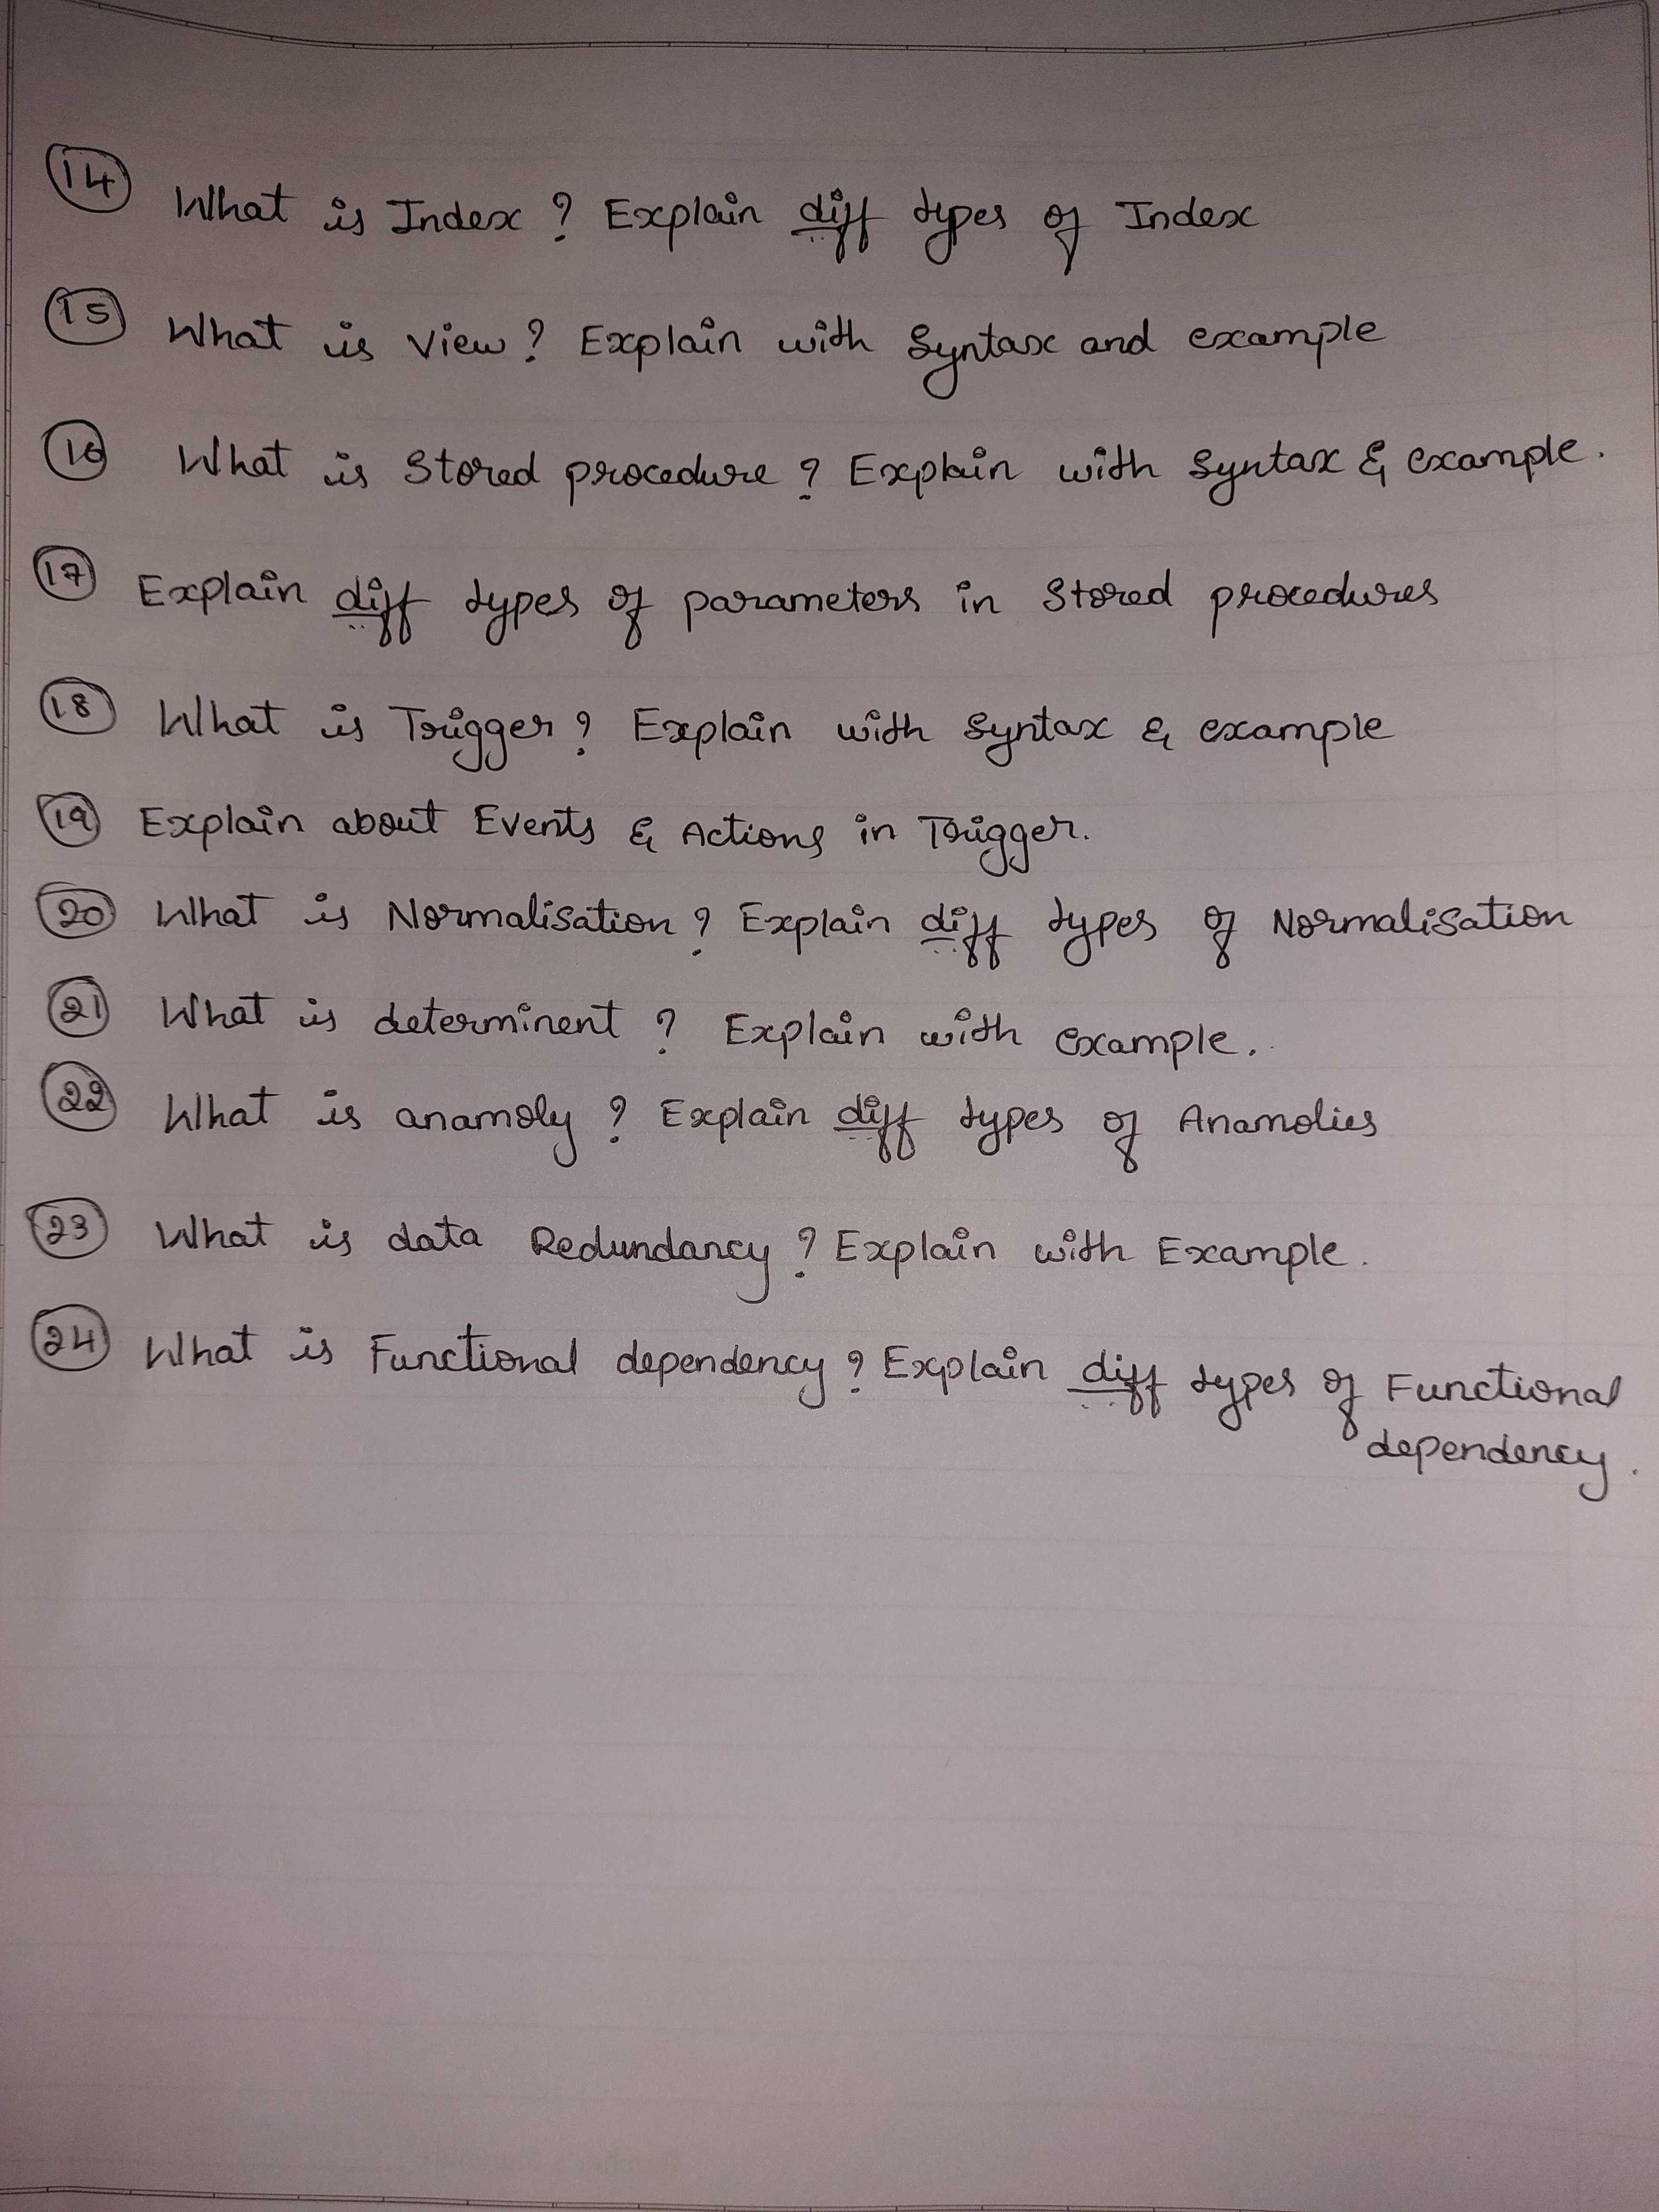 14 What is Index ? Explain diff types of Index
15 What is View ? Explain with Syntax and example
16 What is Stored procedure ? Explain with Syntax & example.
17 Explain diff types of parameters in Stored procedures
18 What is Trigger ? Explain with Syntax & example
19 Explain about Events & Actions in Trigger.
20 What is Normalisation ? Explain diff types of Normalisation
21 What is determinent ? Explain with example.
22 What is anamoly ? Explain diff types of Anamolies
23 What is data Redundancy ? Explain with Example.
24 What is Functional dependency ? Explain diff types of Functional
dependency.